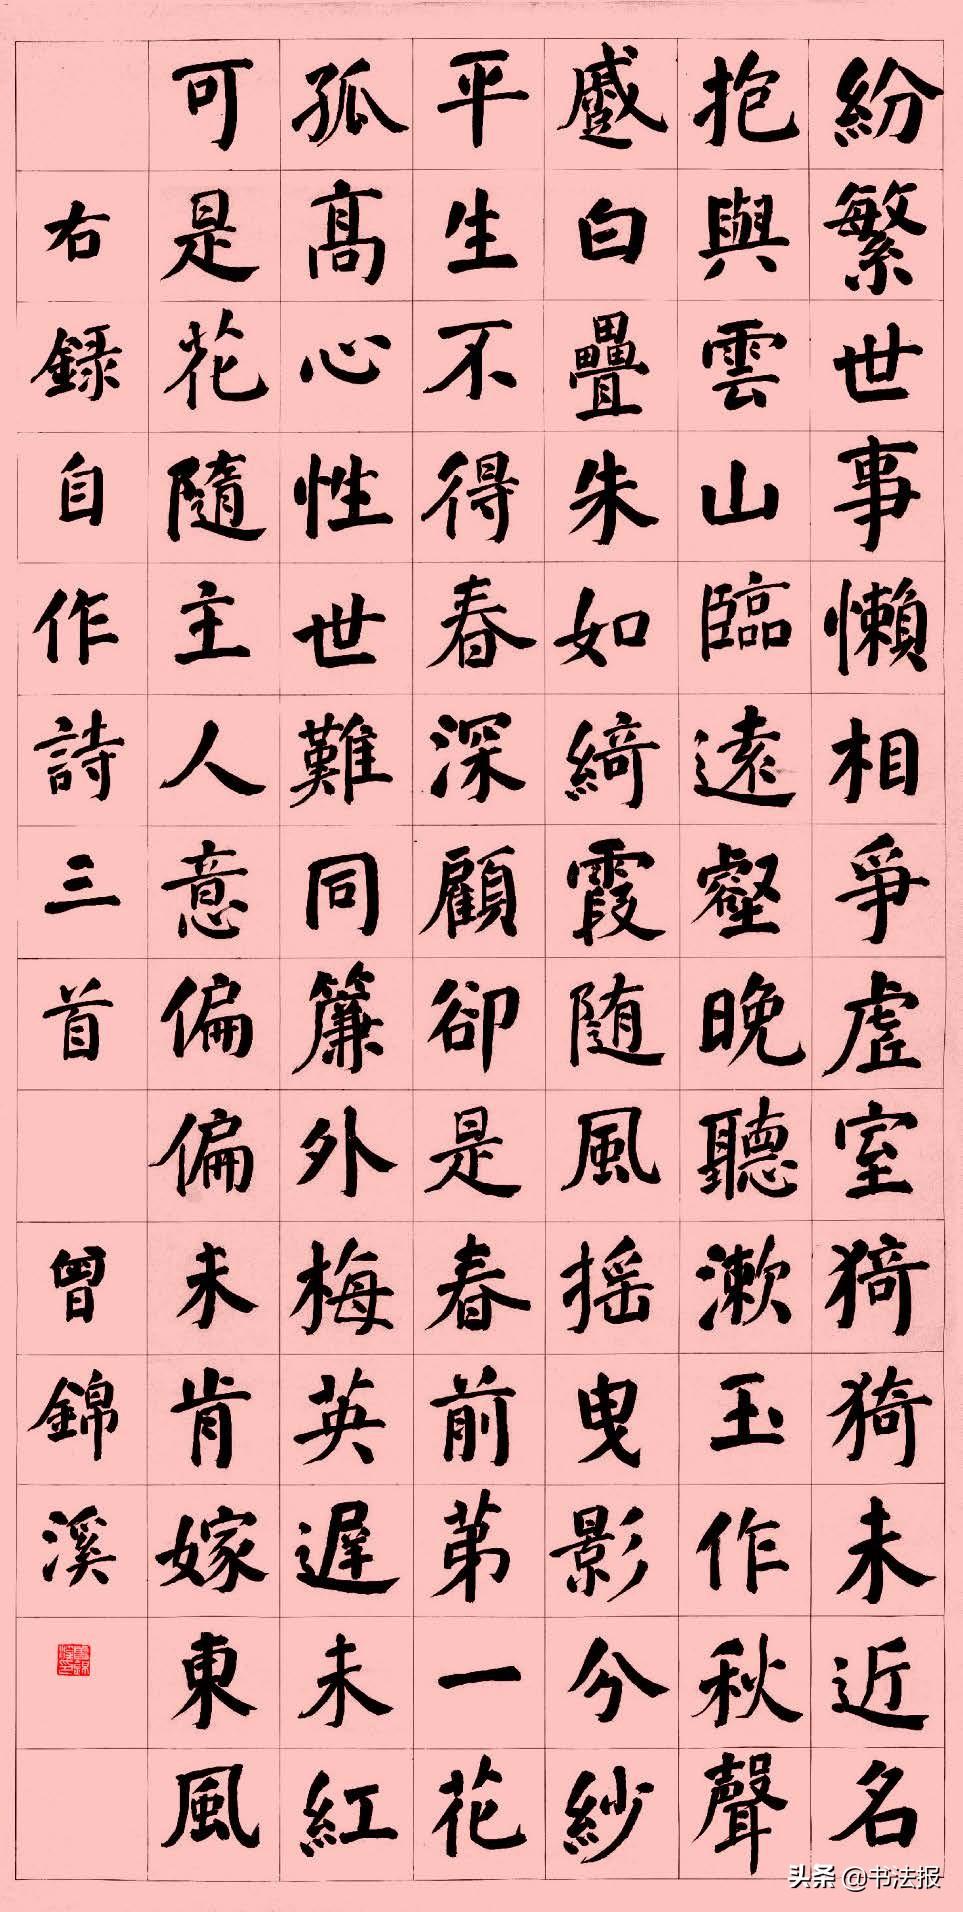 紛繁世事懶相爭虛室猗猗未近名
抱與雲山臨遠壑晚聽漱玉作秋聲
蹙白疊朱如綺霞随風摇曳影分紗
平生不得春深顧卻是春前第一花
孤高心性世難同簾外梅英遲未紅
可是花隨主人意偏偏未肯嫁東風
右録自作詩三首 曾錦溪
头条 @书法报